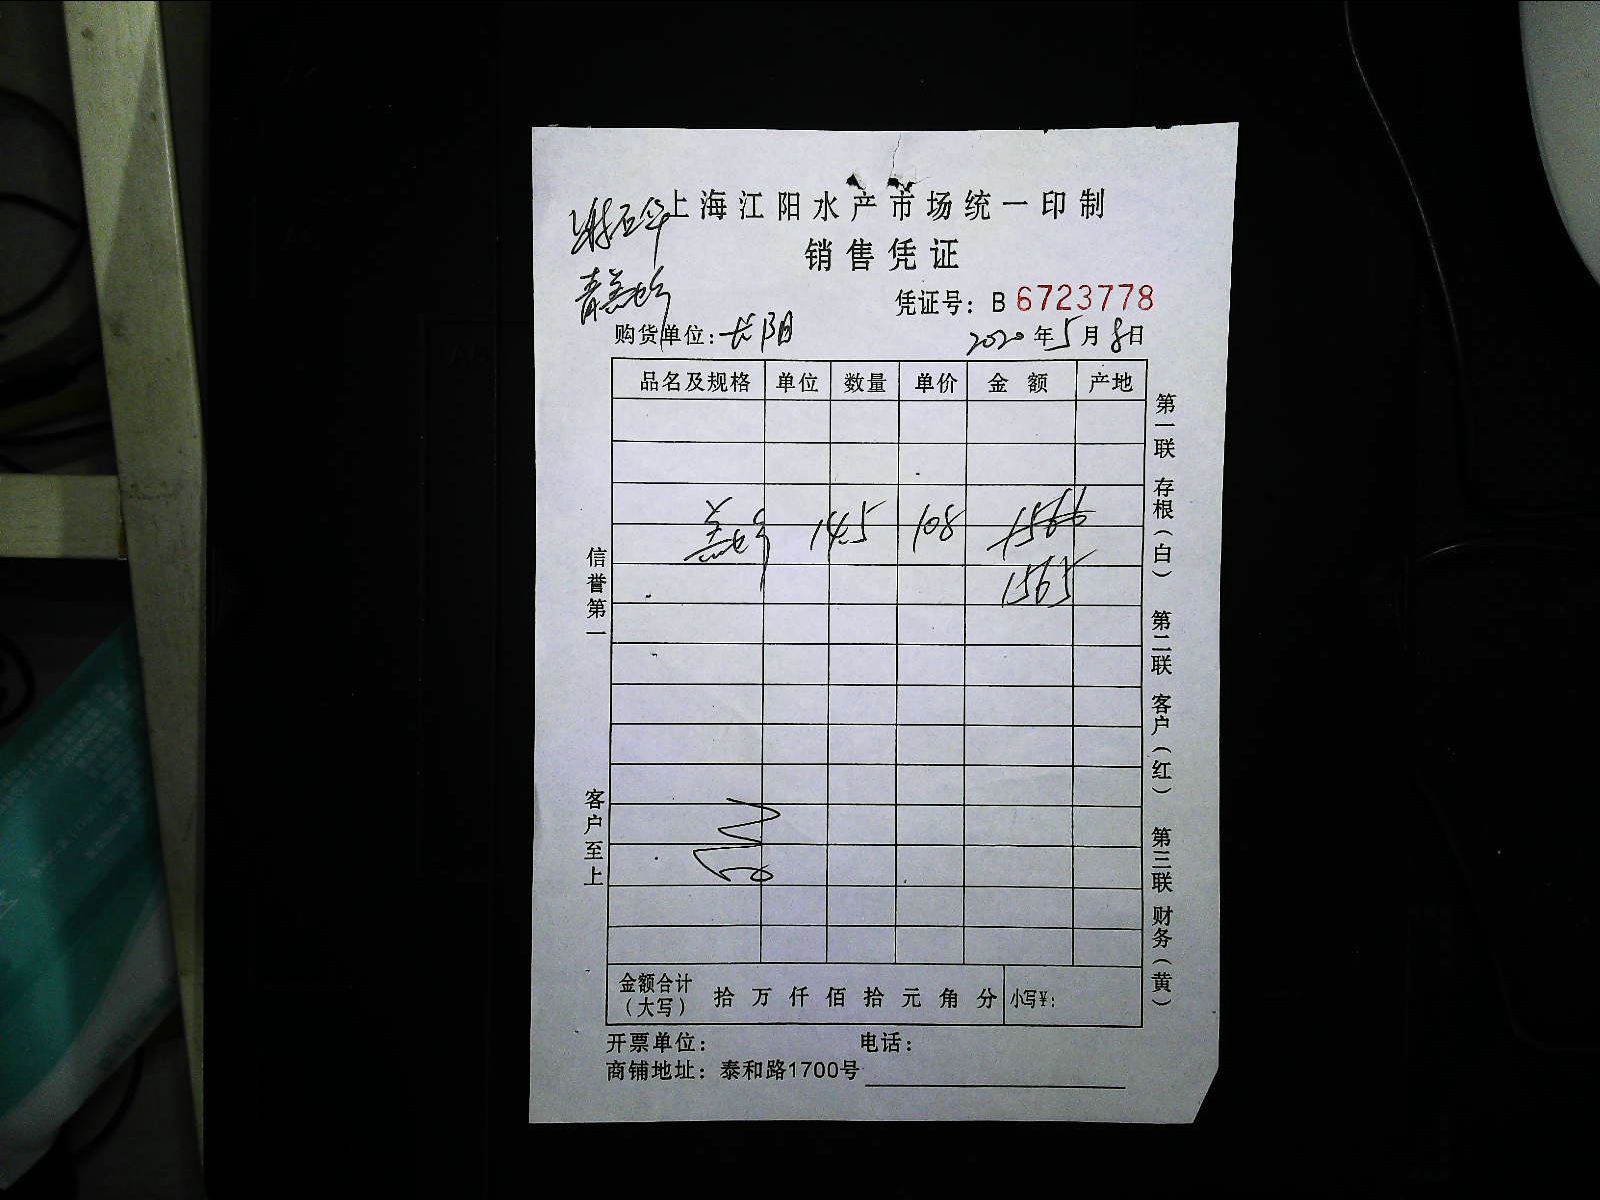 上海江阳水产市场统一印制
销售凭证
凭证号：B 6723778
购货单位：长阳 2020年5月8日
品名及规格 单位 数量 单价 金额 产地
14.5 108 1566
1565
信誉第一
客户至上
第一联 存根（白） 第二联 客户（红） 第三联 财务（黄）
金额合计（大写） 拾 万 仟 佰 拾 元 角 分 小写¥：
开票单位： 电话：
商铺地址：泰和路1700号